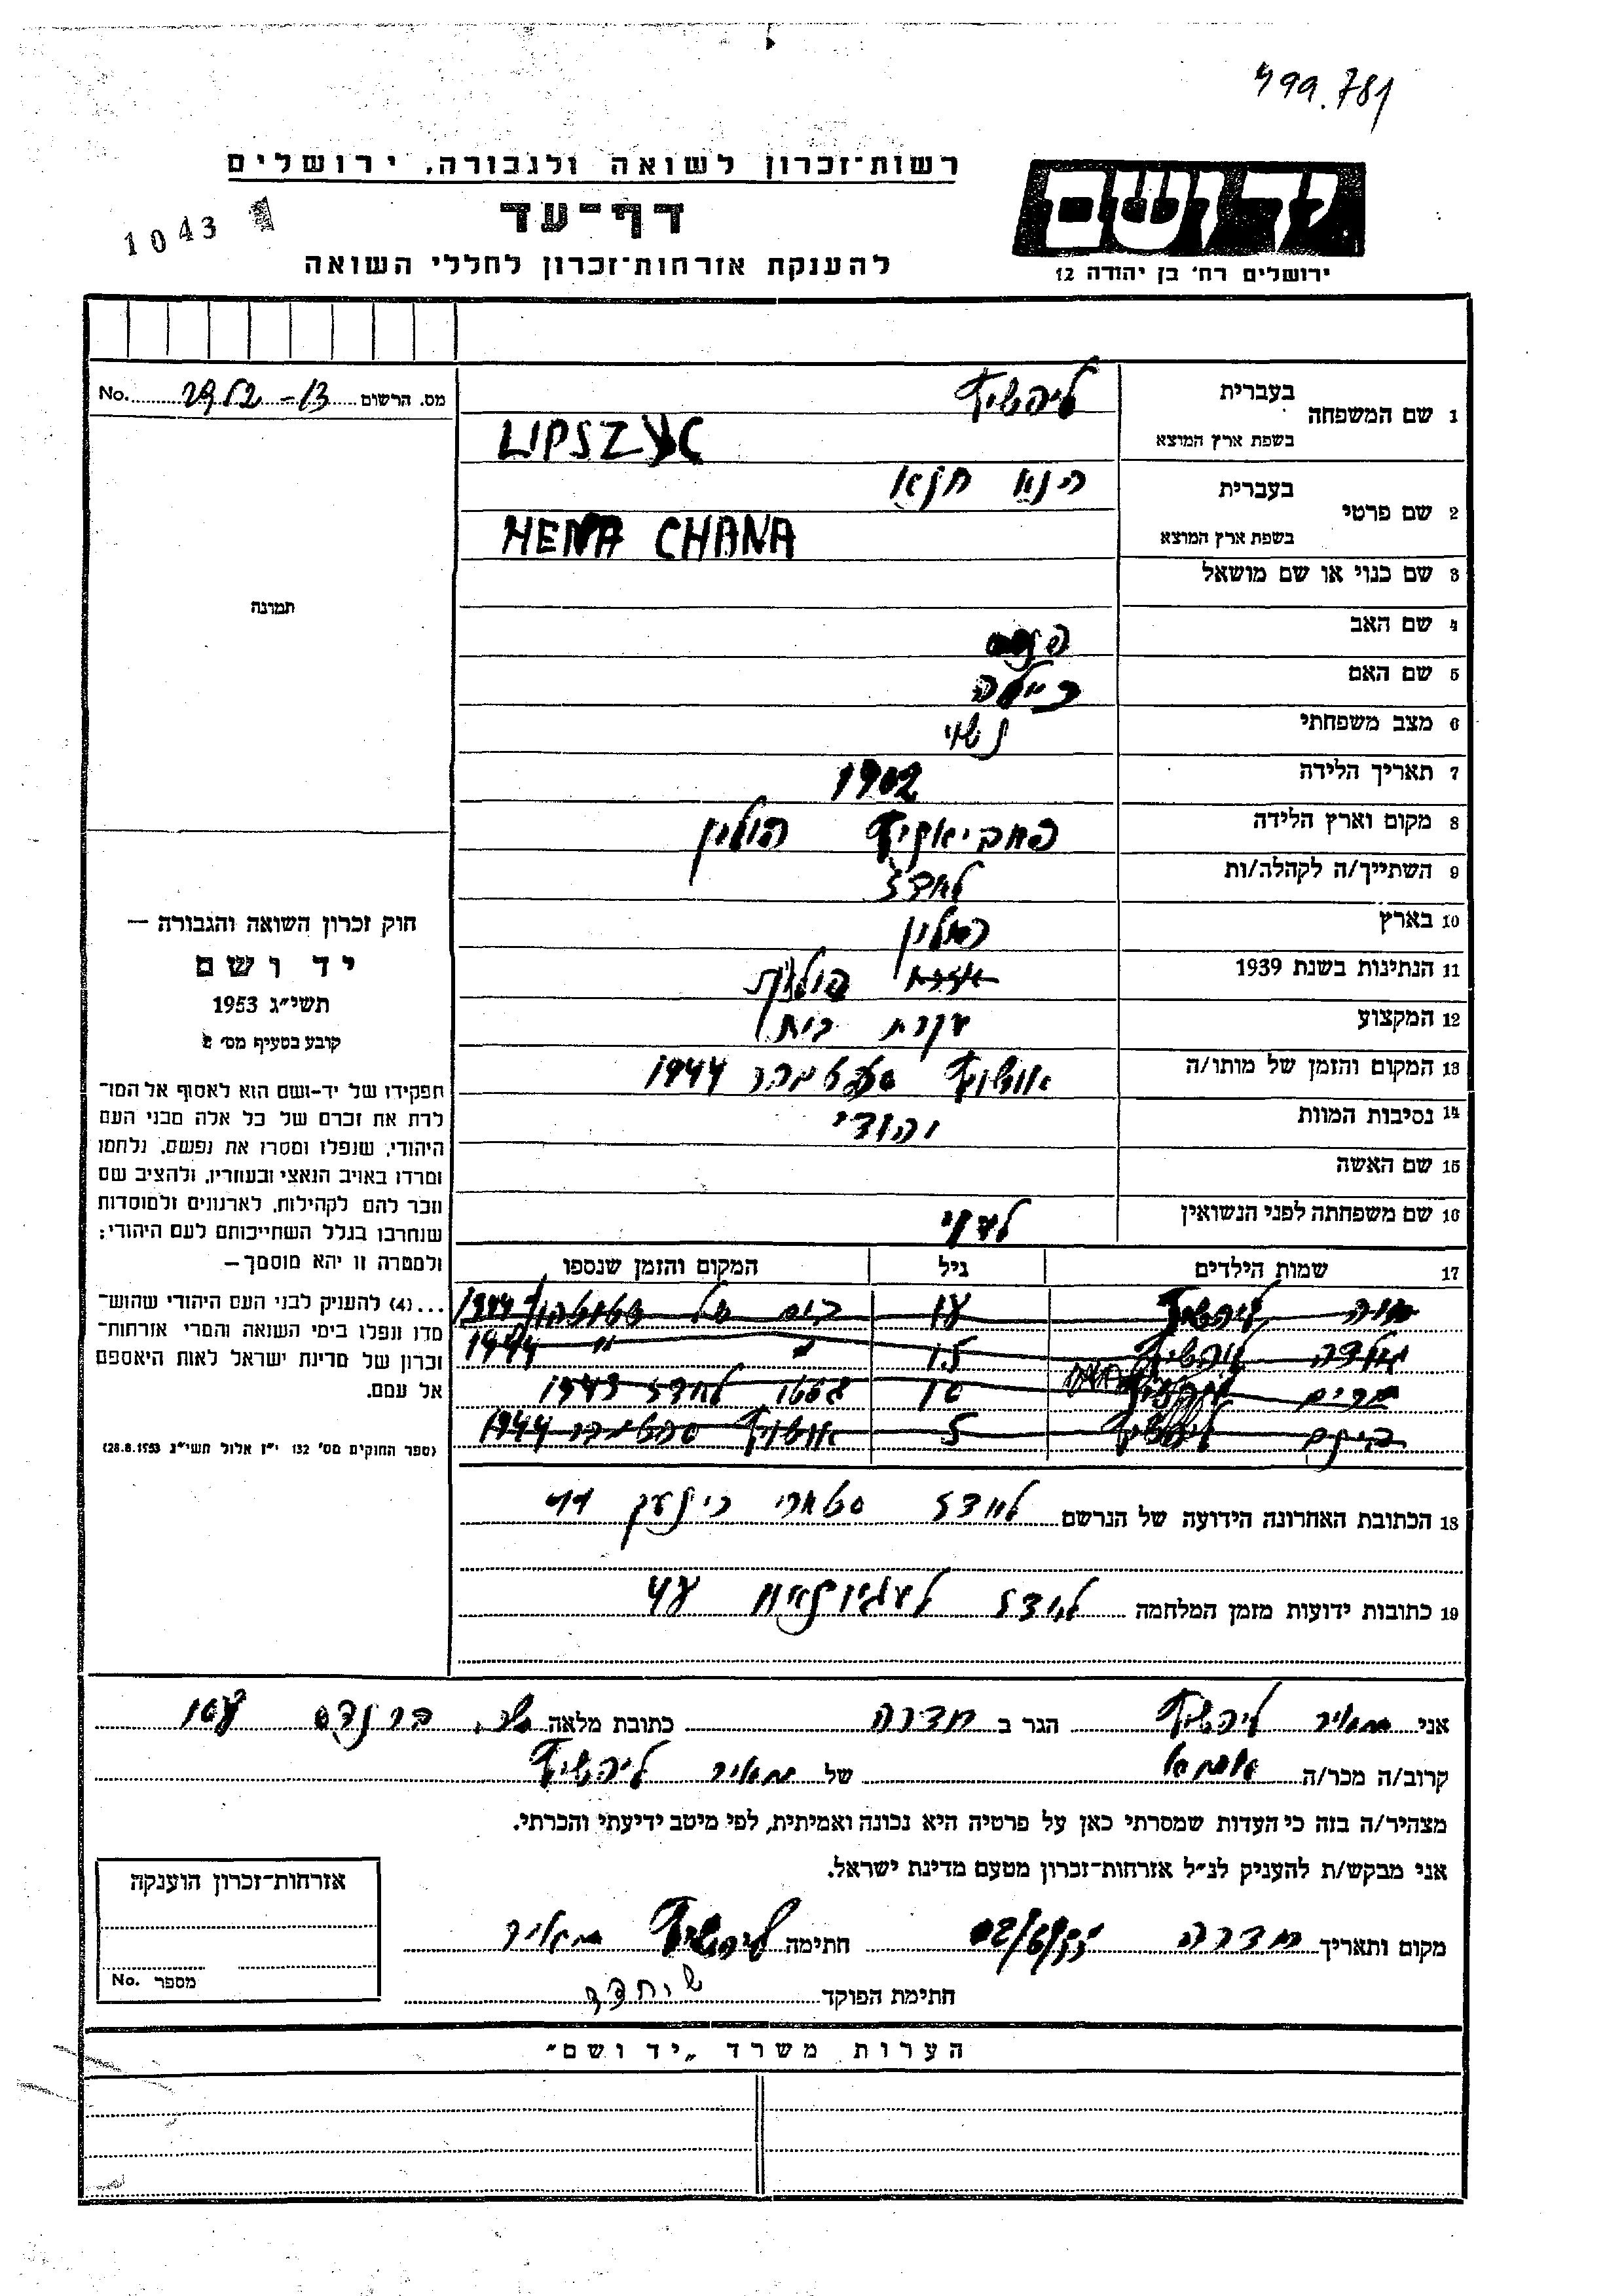 499.781
רשות־זכרון לשואה ולגבורה, ירושלים
דף־עד
1043
להענקת אזרחות־זכרון לחללי השואה
יד ושם
ירושלים רח' בן יהודה 12
מס. הרשום No. 2952-13
תמונה
1 שם המשפחה בעברית ליפשיץ
בשפת ארץ המוצא LIPSZYC
2 שם פרטי בעברית הנא חנא
בשפת ארץ המוצא HENA CHANA
3 שם כנוי או שם מושאל
4 שם האב
5 שם האם ביילה
6 מצב משפחתי נשוי
7 תאריך הלידה 1902
8 מקום וארץ הלידה פאביאניץ פולין
9 השתייך/ה לקהלה/ות לאדז
10 בארץ פולין
11 הנתינות בשנת 1939 פולנית
12 המקצוע עקרת בית
13 המקום והזמן של מותו/ה אושויץ ספטמבר 1944
14 נסיבות המוות יהודי
15 שם האשה
16 שם משפחתה לפני הנשואין
17 שמות הילדים גיל המקום והזמן שנספו
ליפשיץ 17 1944
ליפשיץ 15 " " 1944
מרים 10 גטו לאדז 1943
ליפשיץ 5 אושויץ ספטמבר 1944
18 הכתובת האחרונה הידועה של הנרשם לודז סטארי רינעק
19 כתובות ידועות מזמן המלחמה לודז
חוק זכרון השואה והגבורה —
יד ושם
תשי״ג 1953
קובע בסעיף מס' 2
תפקידו של יד־ושם הוא לאסוף אל המו־
לדת את זכרם של כל אלה מבני העם
היהודי, שנפלו ומסרו את נפשם, נלחמו
ומרדו באויב הנאצי ובעוזריו, ולהציב שם
וזכר להם לקהילות, לארגונים ולמוסדות
שנחרבו בגלל השתייכותם לעם היהודי;
ולמטרה זו יהא מוסמך —
...(4) להעניק לבני העם היהודי שהוש־
מדו ונפלו בימי השואה והמרי אזרחות־
זכרון של מדינת ישראל לאות היאספם
אל עמם.
(ספר החוקים מס' 132 י״ז אלול תשי״ג 28.8.1953)
אני מאיר ליפשיץ הגר ב חדרה כתובת מלאה
קרוב/ה מכר/ה אמא של מאיר ליפשיץ
מצהיר/ה בזה כי העדות שמסרתי כאן על פרטיה היא נכונה ואמיתית, לפי מיטב ידיעתי והכרתי.
אני מבקש/ת להעניק לנ״ל אזרחות־זכרון מטעם מדינת ישראל.
מקום ותאריך חדרה חתימה ליפשיץ מאיר
חתימת הפוקד
אזרחות־זכרון הוענקה
מספר No.
הערות משרד „יד ושם״